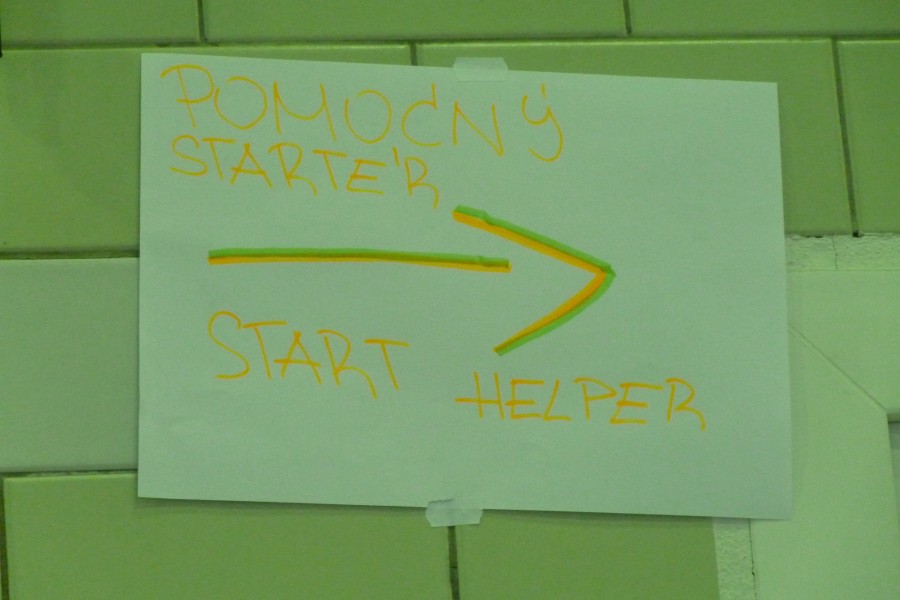 POMOCNÝ
STARTÉR
START
HELPER